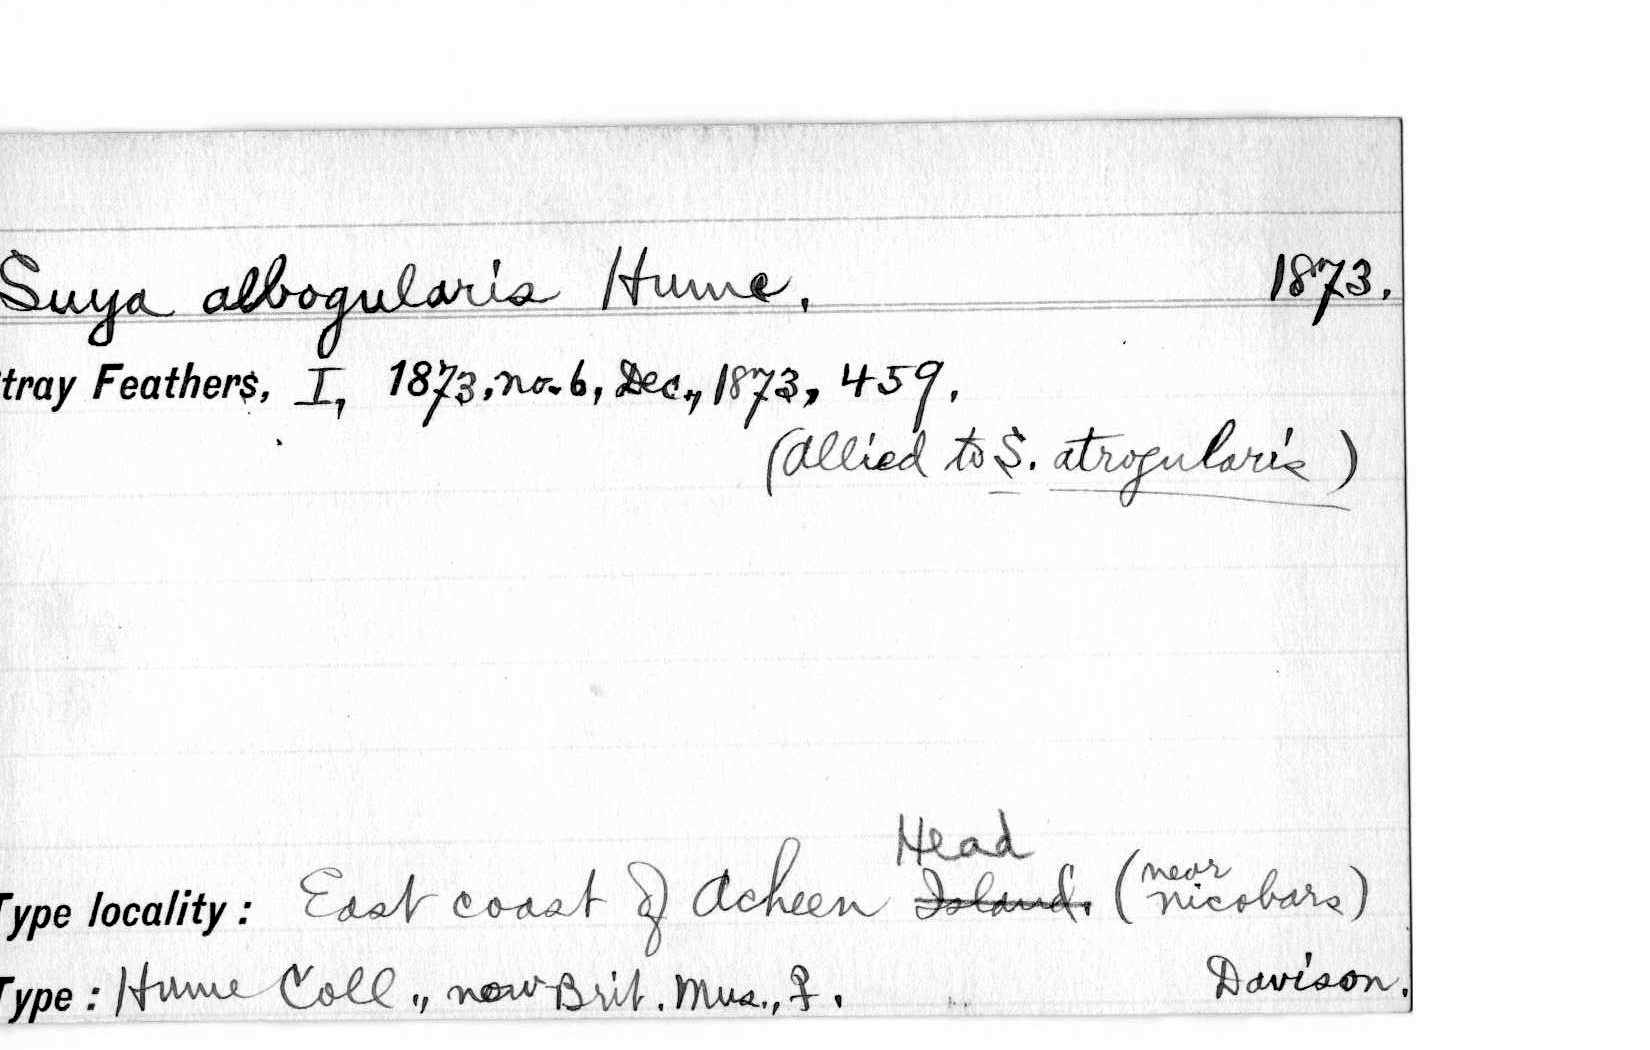 Suya albogularis Hume. 1873.
tray Feathers, I, 1873, no. 6, Dec., 1873, 459.
(allied to S. atrogularis)
Head
Type locality: East coast of Acheen Island. (near Nicobars)
Type: Hume Coll., now Brit. Mus., ♀. Davison.